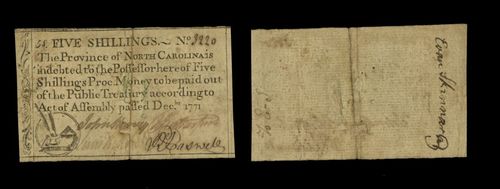 5s. FIVE SHILLINGS. ~ No. 3220
The Province of NORTH CAROLINA is
indebted to the Possessor hereof Five
Shillings Proc. Money to be paid out
of the Public Treasury according to
Act of Assembly passed Decr. 1771
John
Rd Caswell